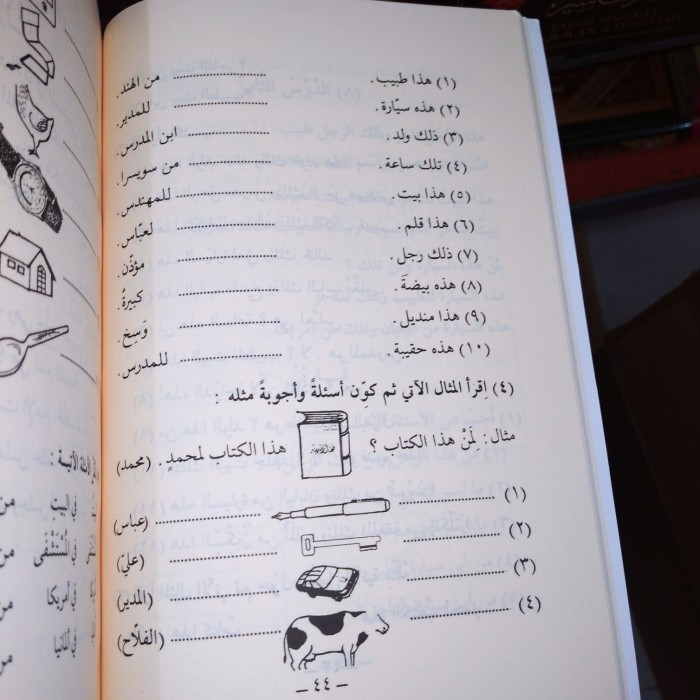 (١) هذا طبيب. .......................... من الهند.
(٢) هذه سيّارة. .......................... للمدير.
(٣) ذلك ولد. .......................... ابن المدرس.
(٤) تلك ساعة. .......................... من سويسرا.
(٥) هذا بيت. .......................... للمهندس.
(٦) هذا قلم. .......................... لعبّاس.
(٧) ذلك رجل. .......................... مؤذّن.
(٨) هذه بيضةَ. .......................... كبيرةٌ.
(٩) هذا منديل. .......................... وَسِخ.
(١٠) هذه حقيبة. .......................... للمدرس.
(٤) اِقرأ المثال الآتي ثم كوّن أسئلةً وأجوبةً مثله :
مثال: لمَنْ هذا الكتاب ؟ هذا الكتاب لمحمدٍ. (محمد)
(١) .......................... .......................... (عباس)
(٢) .......................... .......................... (عليّ)
(٣) .......................... .......................... (المدير)
(٤) .......................... .......................... (الفلّاح)
– ٤٤ –
الآتيـة :
في البيتِ
في المُسْتَشْفَى
في أمريكا
في ألمانيا